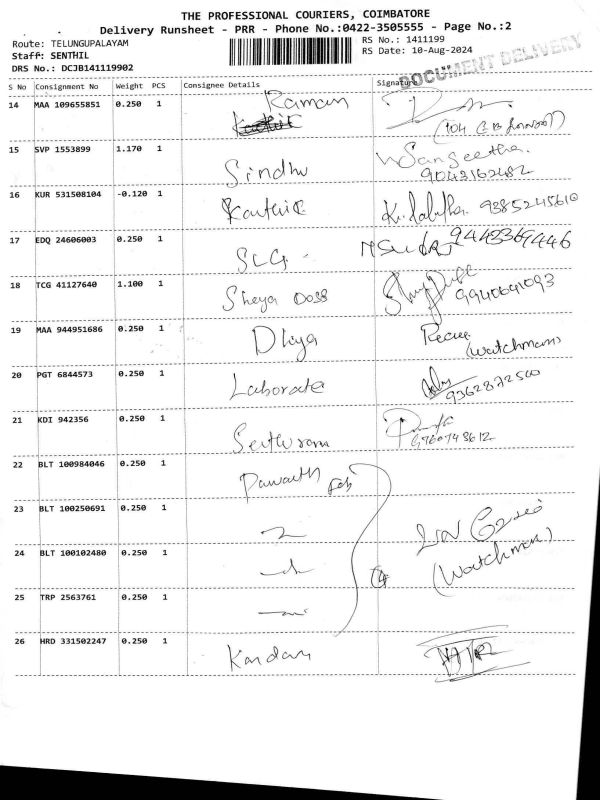 THE PROFESSIONAL COURIERS, COIMBATORE
Delivery Runsheet - PRR - Phone No.:0422-3505555 - Page No.:2
Route: TELUNGUPALAYAM
RS No.: 1411199
Staff: SENTHIL
RS Date: 10-Aug-2024
DRS No.: DCJB141119902
DOCUMENT DELIVERY
S No Consignment No Weight PCS Consignee Details Signature
14 MAA 109655851 0.250 1 Raman
15 SVP 1553899 1.170 1 Sindhu Sangeetha
9043162482
16 KUR 531508104 -0.120 1 Karthic 9385245610
17 EDQ 24606003 0.250 1 SLG 9443369446
18 TCG 41127640 1.100 1 Sheya Doss
9940691093
19 MAA 944951686 0.250 1 Dhya
(Watchman)
20 PGT 6844573 0.250 1 Laborate
9362872500
21 KDI 942356 0.250 1
9760743612
22 BLT 100984046 0.250 1
23 BLT 100250691 0.250 1
24 BLT 100102480 0.250 1
(Watchman)
25 TRP 2563761 0.250 1
26 HRD 331502247 0.250 1 Kandan